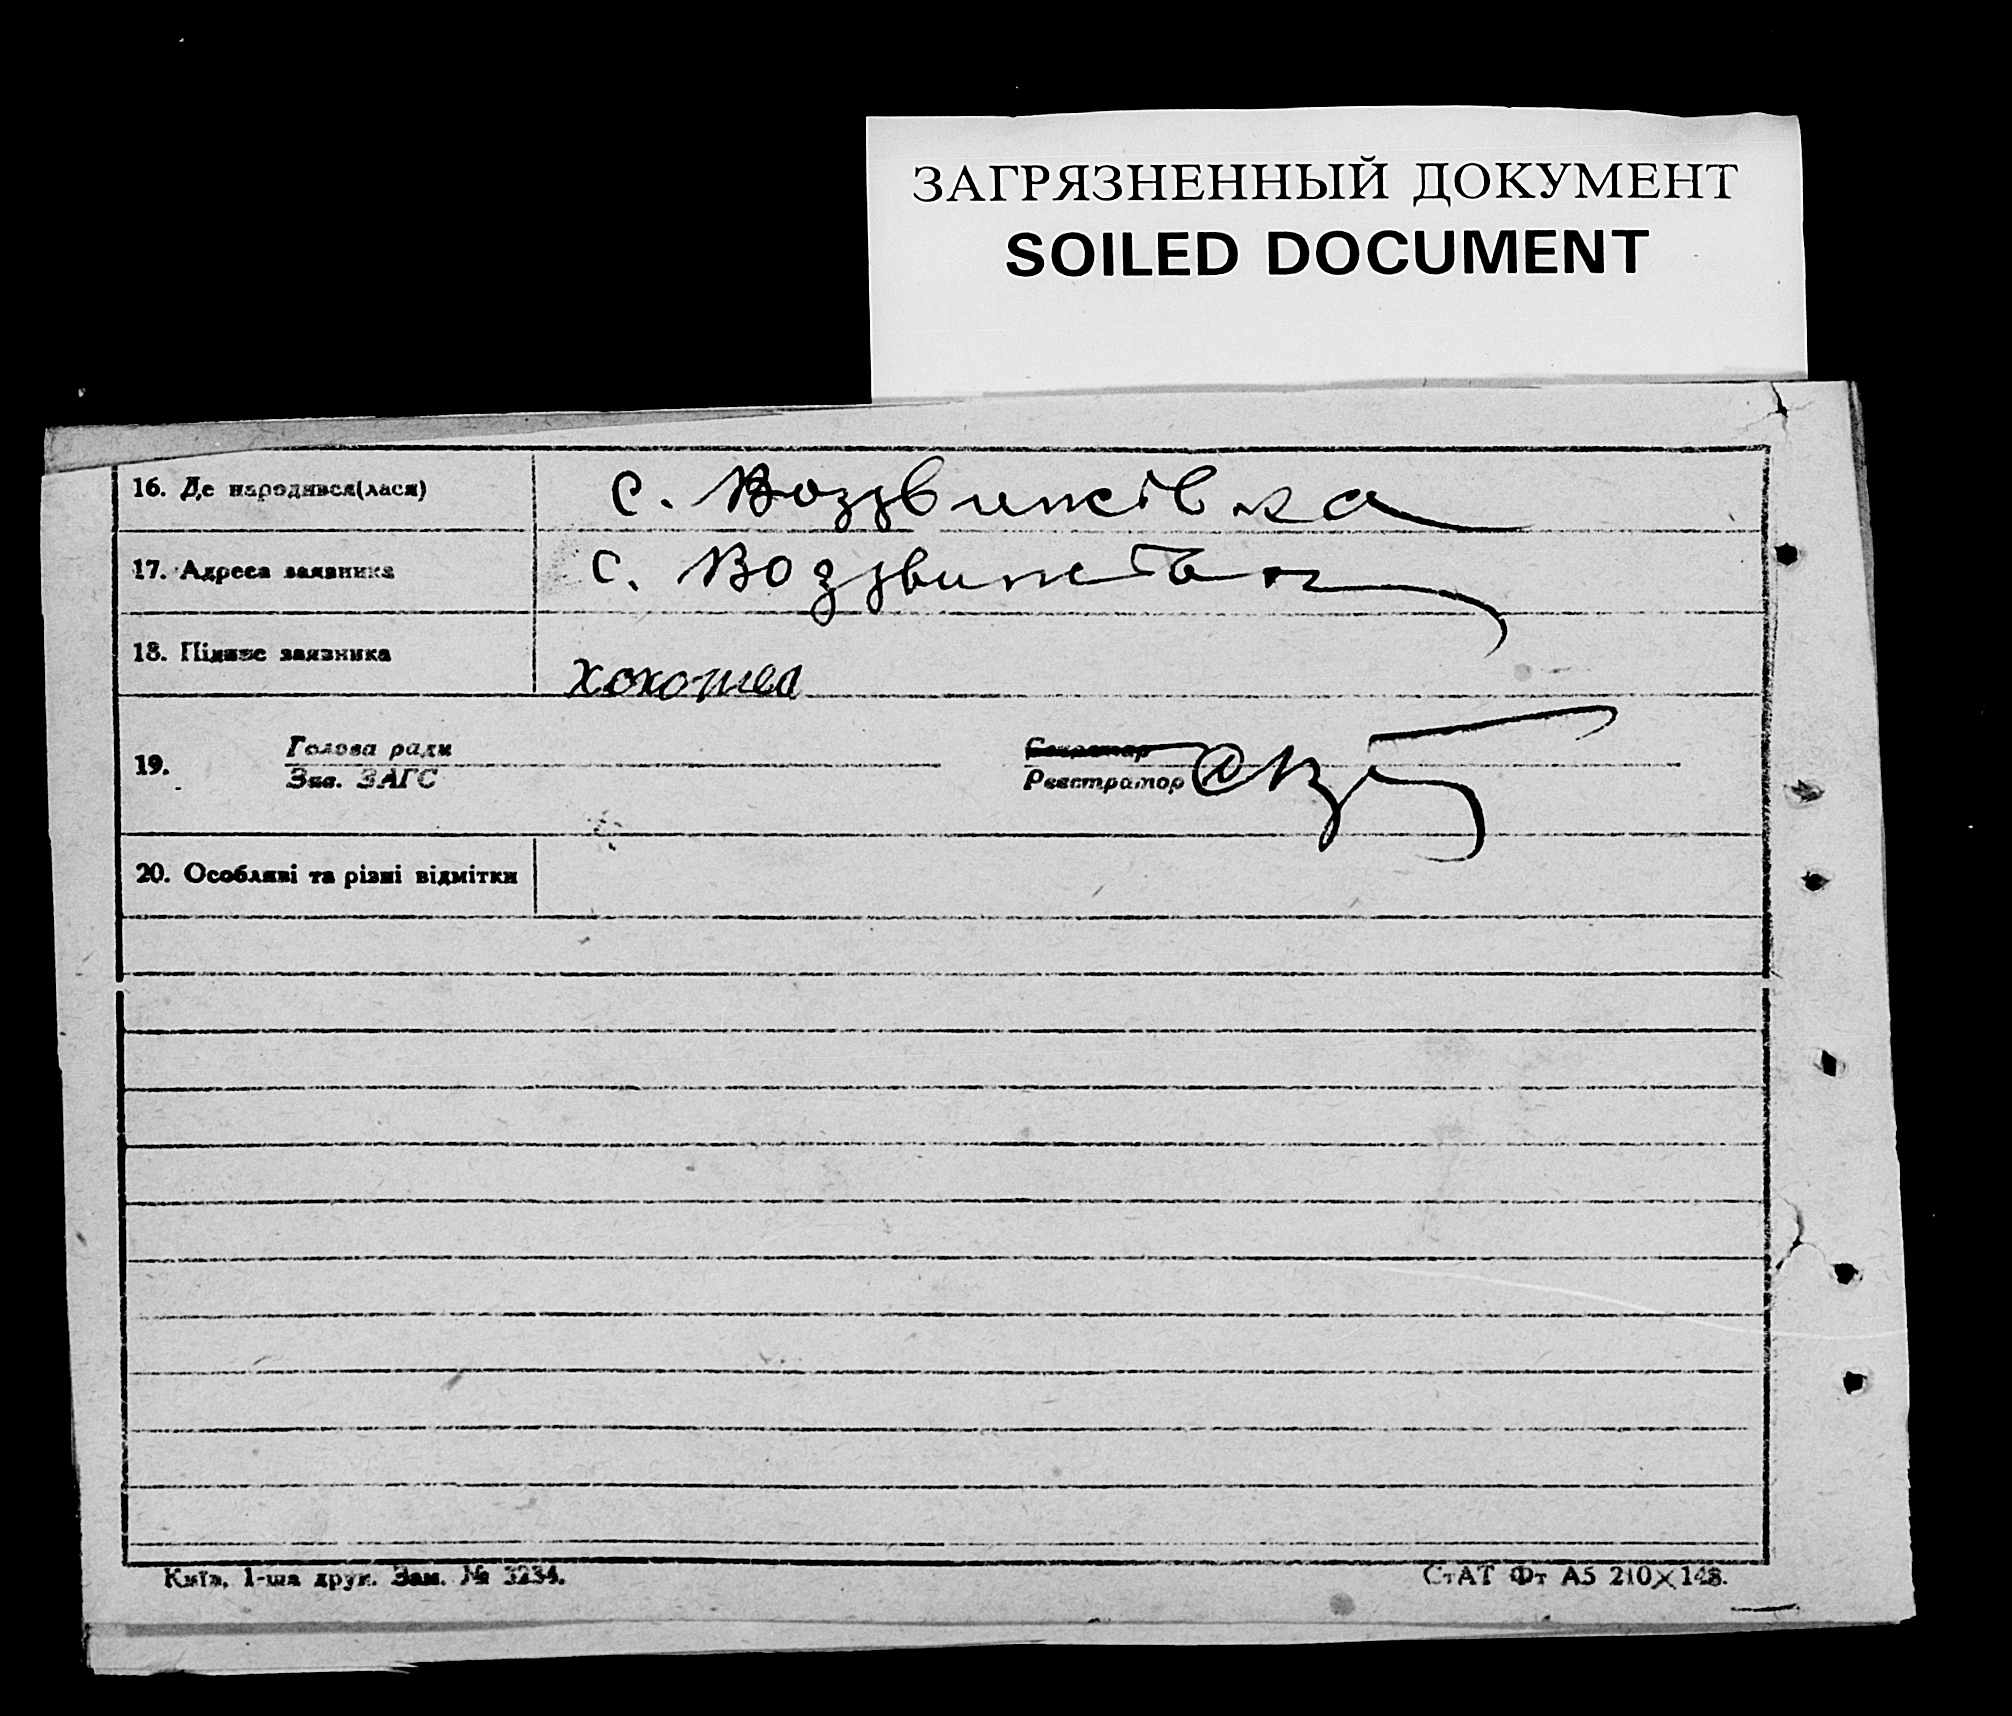 ЗАГРЯЗНЕННЫЙ ДОКУМЕНТ
SOILED DOCUMENT
16. Де народився(лася) с. Воздвижівка
17. Адреса заявника с. Воздвижівка
18. Підпис заявника
19. Голова ради Секретар
Зав. ЗАГС Реєстратор
20. Особливі та різні відмітки
Київ, 1-ша друк. Зам. № 3234.
СтАТ Фт А5 210×148.